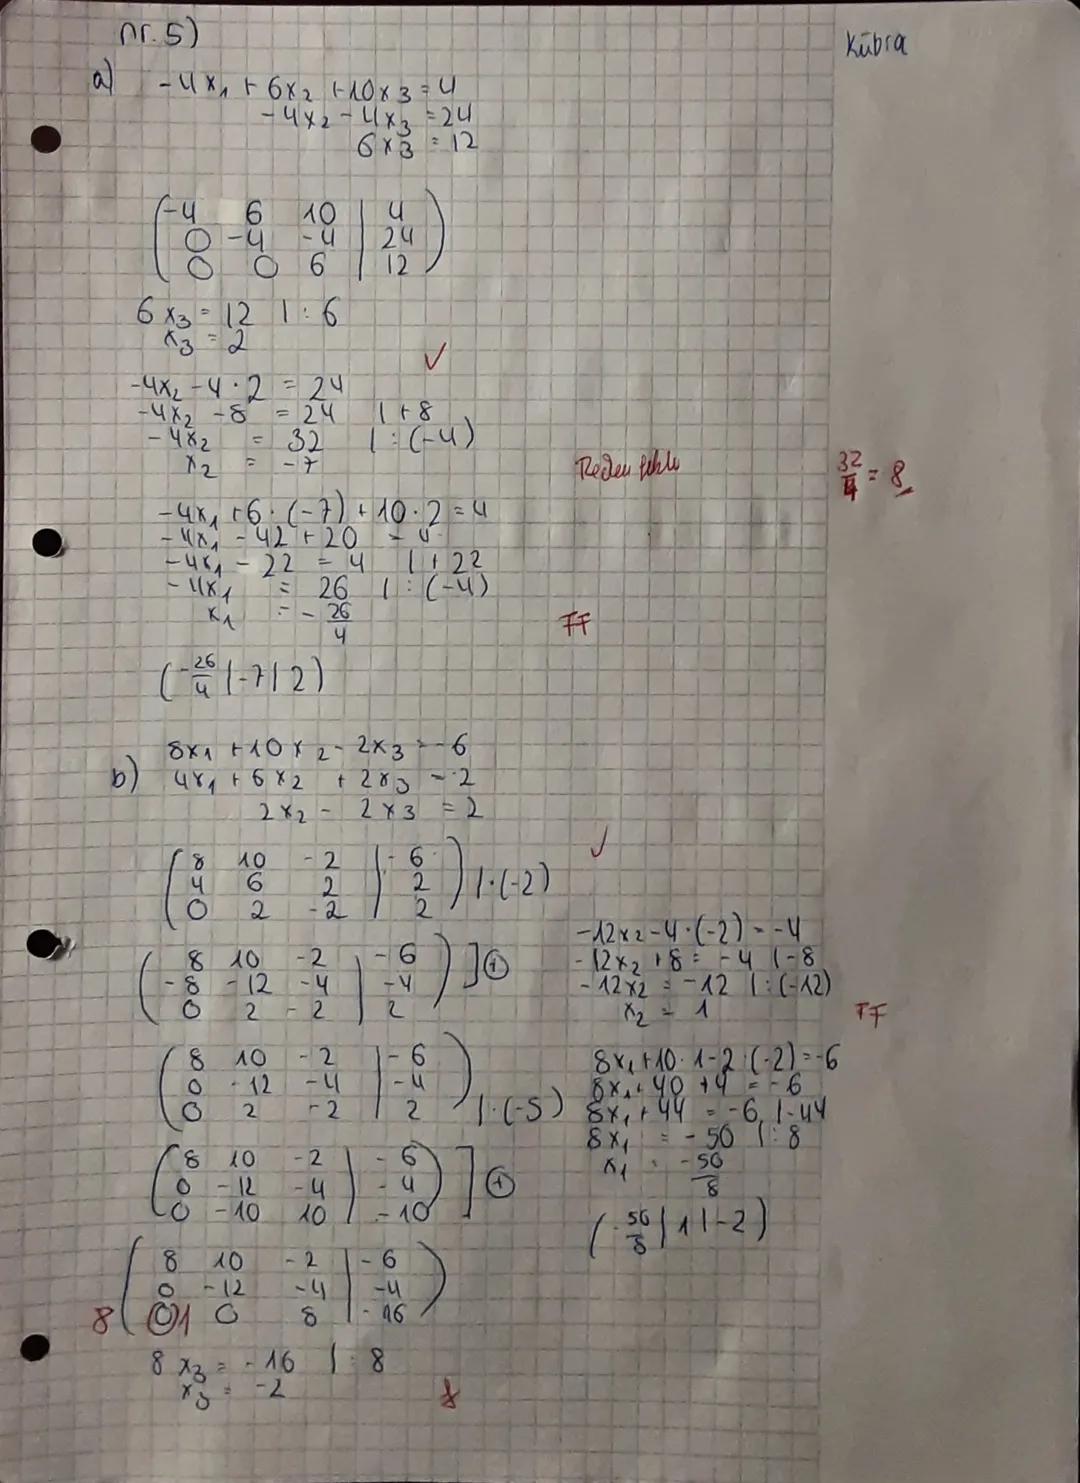 nr. 5)
Kübra
a) -4x₁ + 6x₂ + 10x₃ = 4
-4x₂ - 4x₃ = 24
6x₃ = 12
-4 6 10 | 4
0 -4 -4 | 24
0 0 6 | 12
6x₃ = 12 | : 6
x₃ = 2
✓
-4x₂ - 4 · 2 = 24
-4x₂ - 8 = 24 | +8
-4x₂ = 32 | : (-4)
x₂ = -7
32/4 = 8
-4x₁ + 6 · (-7) + 10 · 2 = 4
-4x₁ - 42 + 20 = 4
-4x₁ - 22 = 4 | + 22
-4x₁ = 26 | : (-4)
x₁ = - 26/4
FF
(-26/4 | -7 | 2)
b) 8x₁ + 10x₂ - 2x₃ = -6
4x₁ + 6x₂ + 2x₃ = 2
2x₂ - 2x₃ = 2
✓
8 10 -2 | -6
4 6 2 | 2 | · (-2)
0 2 -2 | 2
8 10 -2 | -6
-8 -12 -4 | -4 ] ⊕
0 2 -2 | 2
8 10 -2 | -6
0 -12 -4 | -4
0 2 -2 | 2 | · (-5)
8 10 -2 | -6
0 -12 -4 | -4 ] ⊕
0 -10 10 | -10
8 10 -2 | -6
0 -12 -4 | -4
8 0 1 0 8 | -16
8x₃ = -16 | : 8
x₃ = -2
-12x₂ - 4 · (-2) = -4
-12x₂ + 8 = -4 | -8
-12x₂ = -12 | : (-12)
x₂ = 1
FF
8x₁ + 10 · 1 - 2 · (-2) = -6
8x₁ + 40 + 4 = -6
8x₁ + 44 = -6 | -44
8x₁ = -50 | : 8
x₁ = -50/8
(-50/8 | 1 | -2)